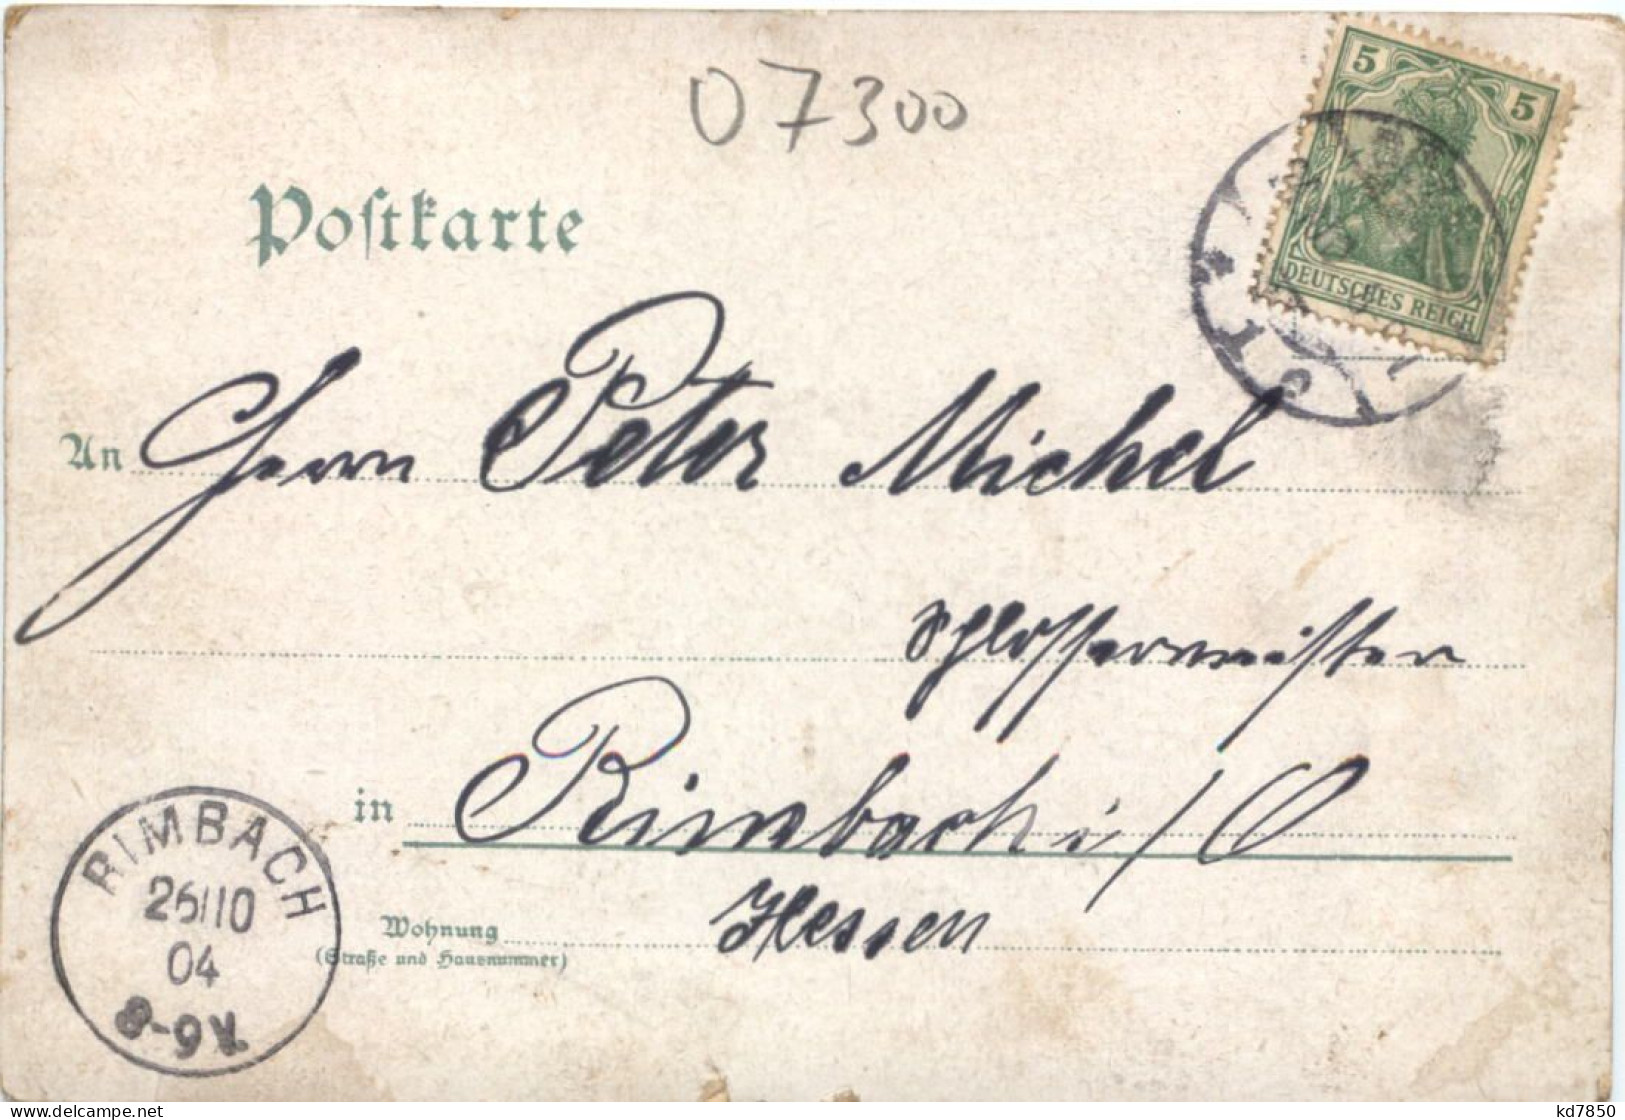 07300
5 5
DEUTSCHES REICH
Poſtkarte
An Herrn Peter Michel
Schlossermeister
in Rimbach i/O
Hessen
Wohnung
(Straße und Hausnummer)
RIMBACH
26/10
04
8-9V.
www.delcampe.net
kd7850